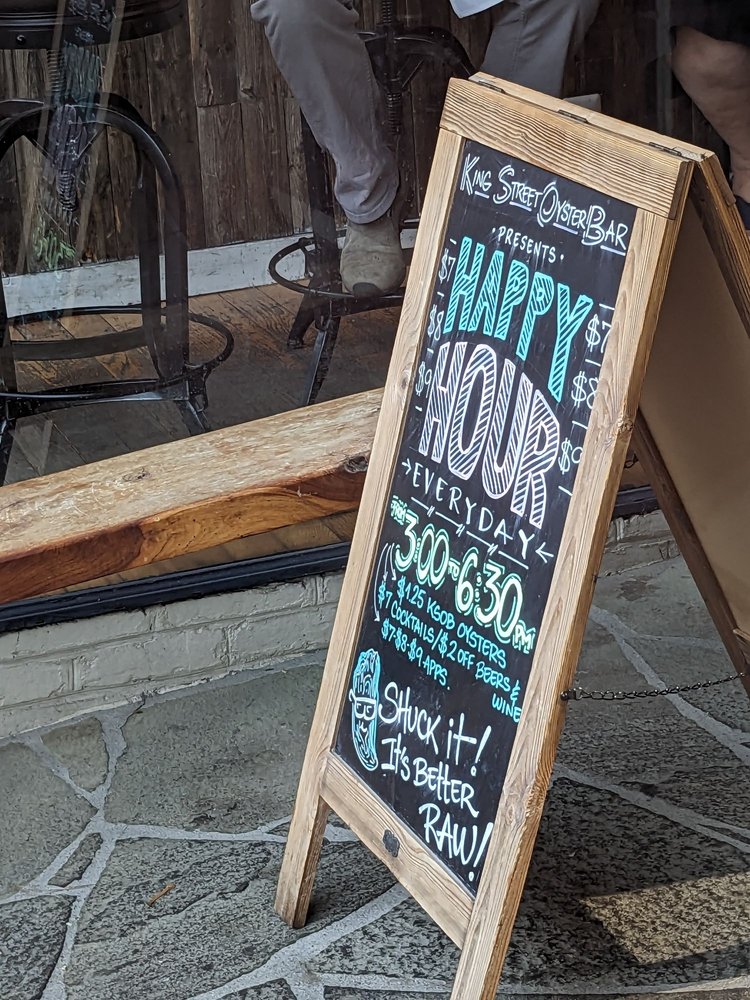 King Street Oyster Bar
• PRESENTS •
$7 HAPPY $7
$8 $8
$9 HOUR $9
→EVERYDAY←
FROM 3:00 TO 6:30 PM
$1.25 KSOB OYSTERS
$7 COCKTAILS/$2 OFF BEERS &
WINE
$7-$8-$9 APPS.
SHUCK it!
It's Better
RAW!